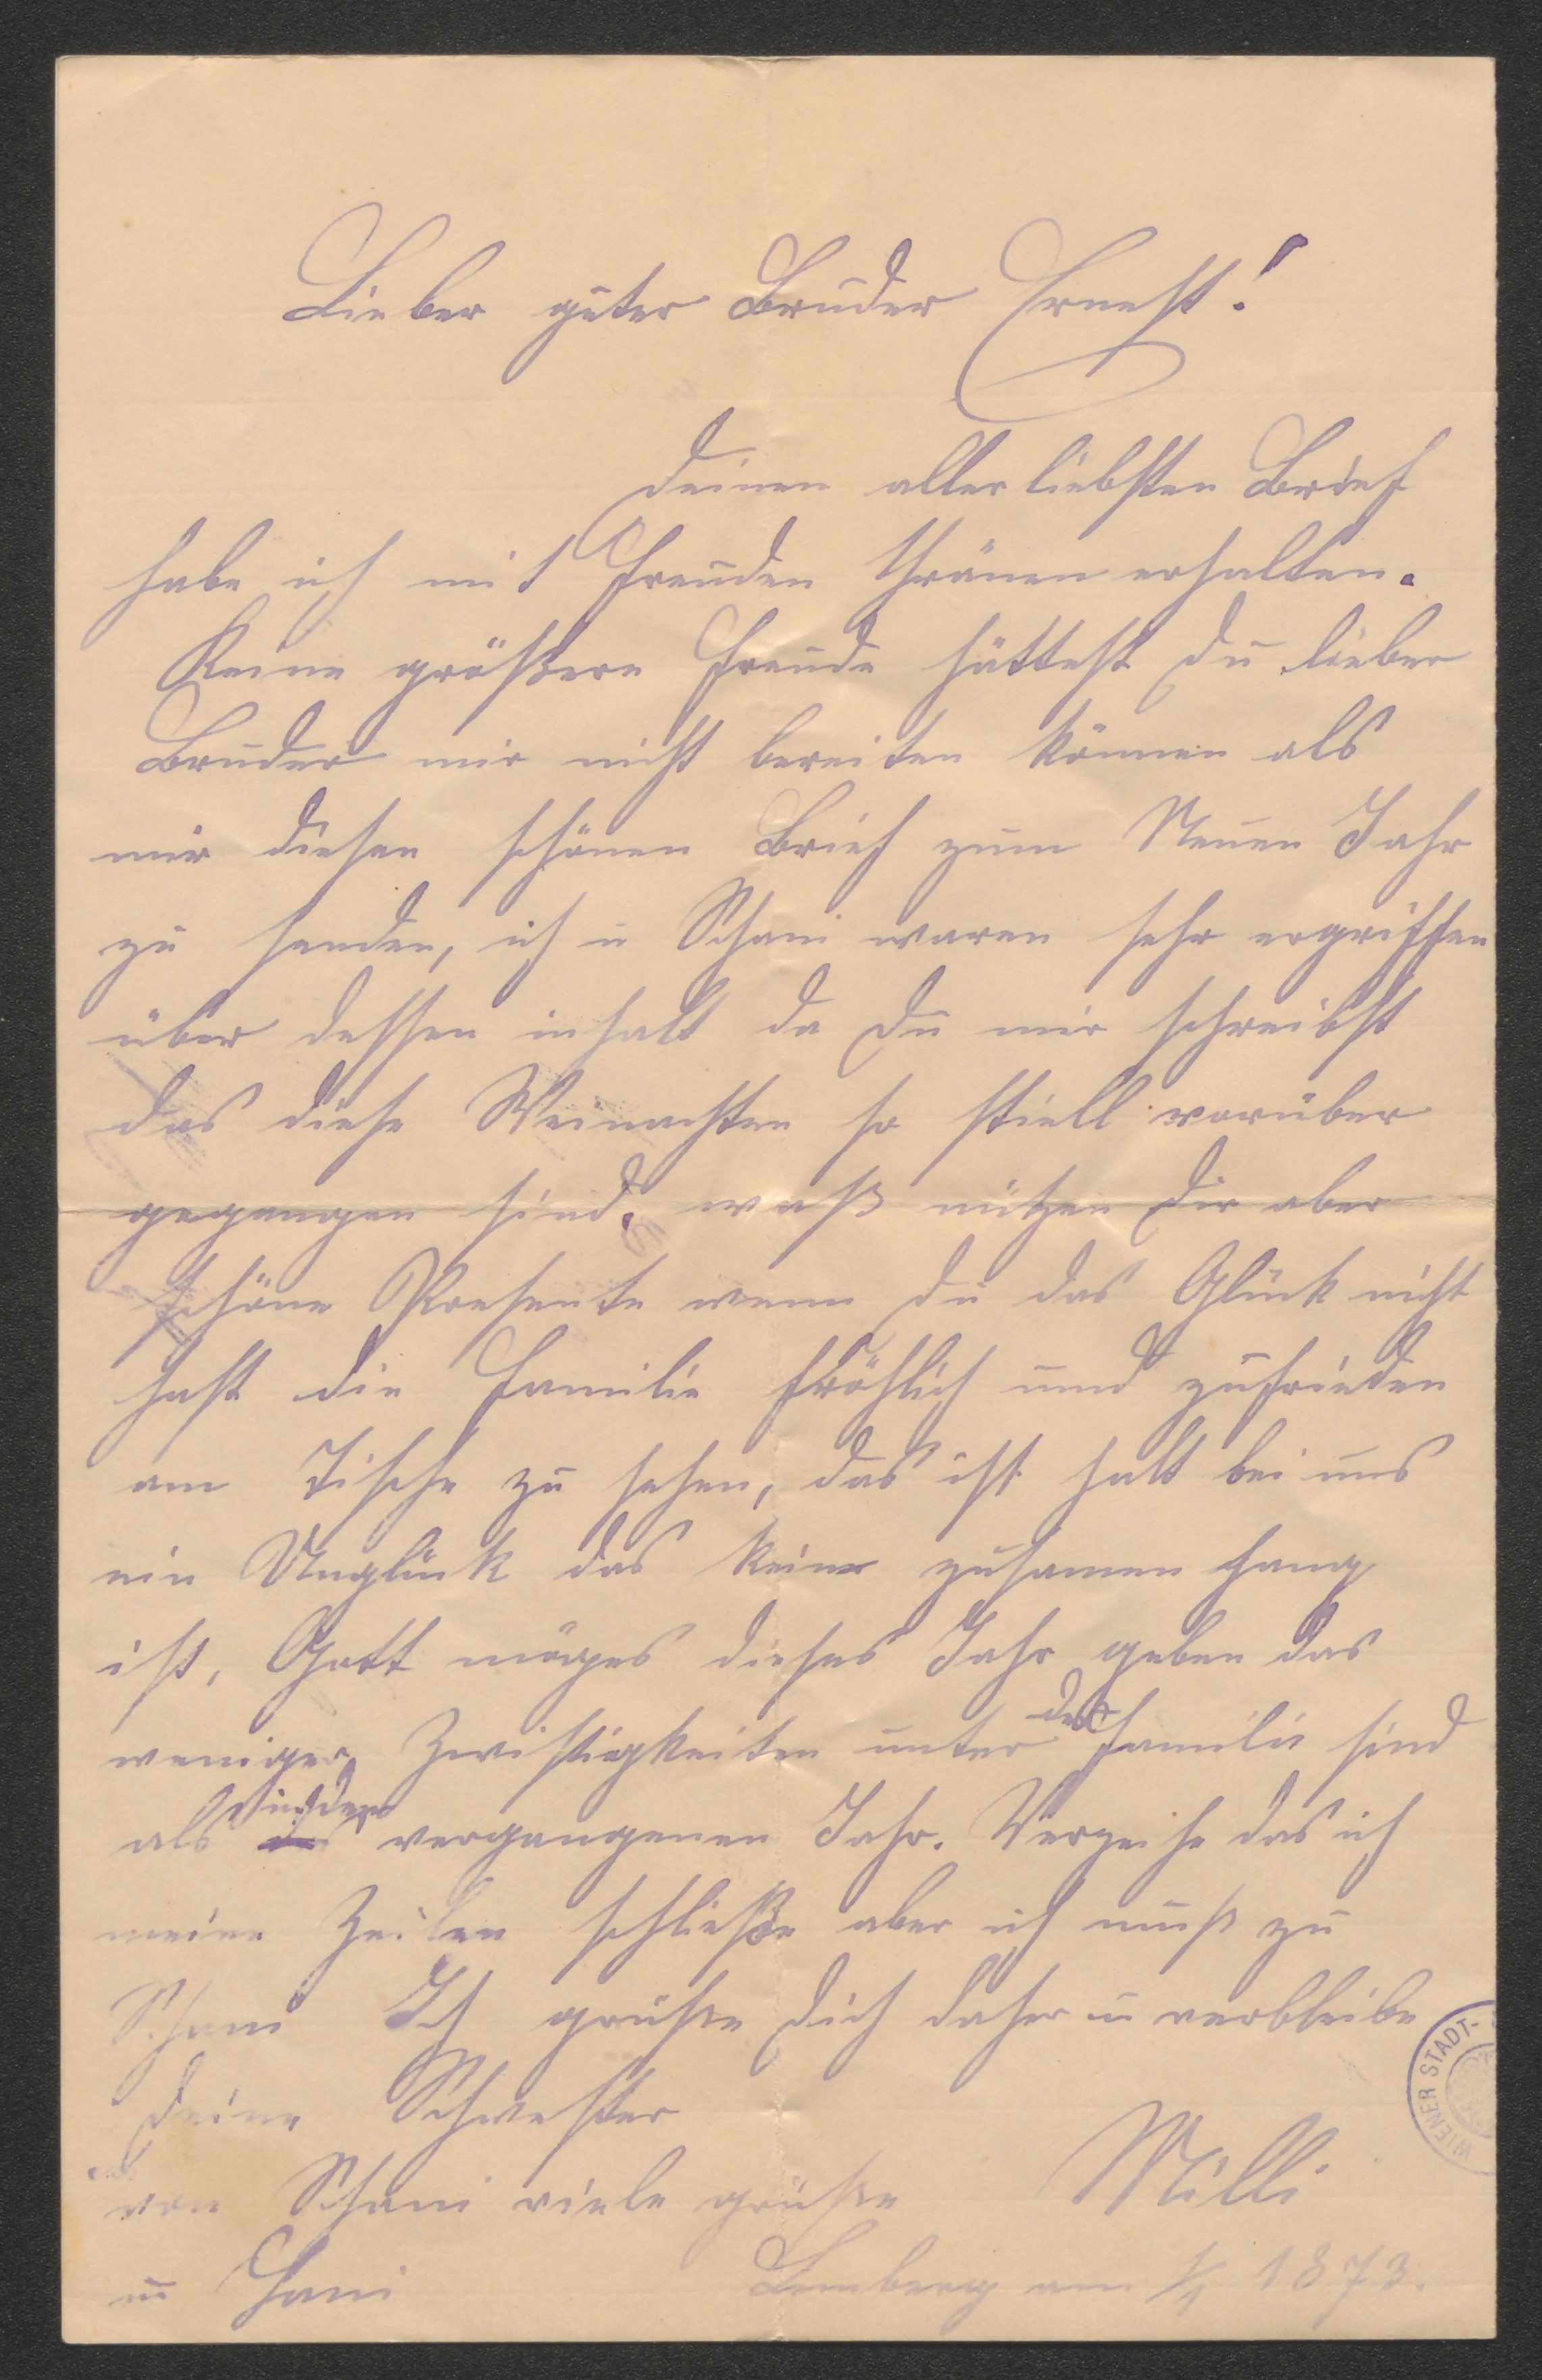 Lieber guter Bruder Ernest!
Deinen allerliebsten Brief
habe ich mit Freuden thränen erhalten.
Keine größere Freude hättest Du lieber
Bruder mir nicht bereiten können als
mir diesen schönen Brief zum Neuen Jahr
zu senden, ich u Schani waren sehr ergriffen
über dessen inhalt da Du mir schreibst
das diese Weinachten so stiell vorüber
gegangen sind. waß nützen Dir aber
schöne Presente wenn du das Glück nicht
hast die Familie fröhlich und zufrieden
am Tische zu sehen, das ist halt bei uns
ein Unglück das keine zusamen hang
ist, Gott möges dieses Jahr geben das
weniger Zwistigkeiten unter der Familie sind
als in den vergangenen Jahr. Verzeihe das ich
meine Zeilen schließe aber ich muß zu
Schani Ich grüße Dich daher u verbleibe
Deine Schwester
Milli
von Schani viele grüße
u Hani
Lemberg am 1/1 1873.
WIENER STADT-